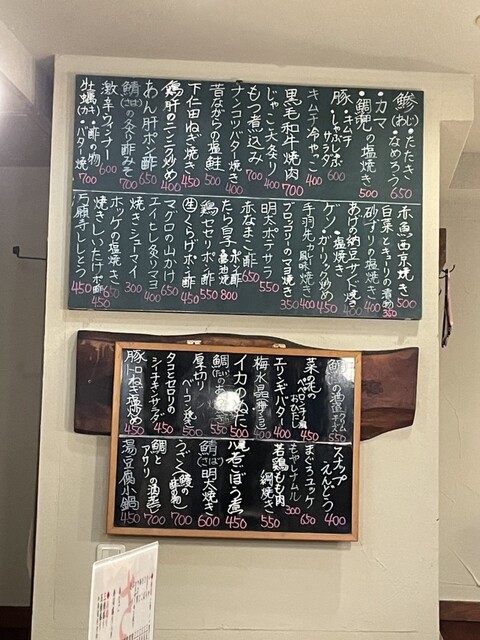 鯵(あじ)・たたき・なめろう 650
・カマ
・鯛兜の塩焼き 500
豚・キムチ・しゃぶしゃぶサラダ 700
キムチ冷やっこ 400
黒毛和牛焼肉 700
じゃこ天炙り 400
もつ煮込み 700
ナンコツバター焼き 400
昔ながらの塩鮭 500
下仁田ねぎ焼き 450
鶏肝のニンニク炒め 400
あん肝ポン酢 650
鯖(さば)の炙り酢みそ 700
激辛ウィンナー 600
牡蠣(カキ)・酢の物・バター焼 700
赤魚西京焼き 500
白菜とキューリの漬物 350
砂ずりの塩焼き 400
あげの納豆サンド焼き 400
ゲソ・塩焼き・ガーリック炒め 450
手羽先カレー風味焼き 400
ブロッコリーのマヨ焼き 350
明太ポテサラ 500
赤なまこ酢 650
たら白子・ポン酢・醤油焼 800
鶏セセリポン酢 550
生くらげポン酢 450
マグロの山かけ 650
エイヒレ炙りマヨ 400
焼きシューマイ 300
ホッケの塩焼き 650
焼きしいたけポン酢 450
万願寺ししとう 450
菜の花のペペロンチーノ風 おひたし 450
エリンギバター 400
梅水晶 400
イカのぬた 500
厚切りベーコン焼き 550
タコとセロリのシイオキーサラダ 450
豚トロねぎ塩炒め 450
スナップえんどう 400
まぐろユッケ 650
もやしナムル 300
若鶏もも肉網焼き 550
ごぼう煮 450
鯖(さば)明太焼き 600
うざく(鰻の酢の物) 700
鯛とアサリの酒蒸し 700
湯豆腐小鍋 450